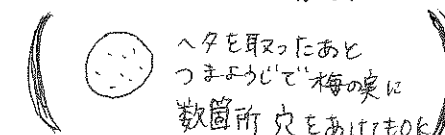 ヘタを取ったあと
つまようじで梅の実に
数箇所 穴をあけてもOK